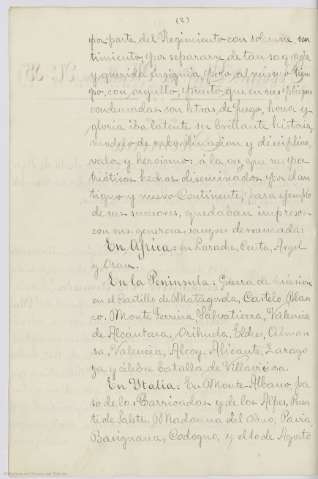 (2)
por parte del Regimiento con solemne sen
timiento, por separarse de tan sagrada
y querida insignia, pero al mismo tiem
po, con orgullo, puesto que en sus pliegues
condensadas con letras de fuego, honor y
gloria iba latente su brillante historia,
modelo de subordinacion y disciplina,
valor y heroismo; á la vez, que sus pa
trióticos hechos diseminados por el an
tiguo y nuevo Continente, para ejemplo
de sus sucesores, quedaban impresos
con su generosa sangre derramada:
En Africa: en Larache, Ceuta, Argel
y Oran.
En la Península: Guerra de
en el Castillo de Matagorda, Castelo Blan
co, Monte Ferreira, Salvatierra, Valencia
de Alcantara, Orihuela, Elche, Alman
sa, Valencia, Alcoy, Alicante, Zarago
za y célebre batalla de Villaviciosa.
En Italia: En Monte Albano, pa
so de las Barricadas y de los Alpes, Puen
te de Madonna del Olmo, Pavia,
Codogno, y el 10 de Agosto